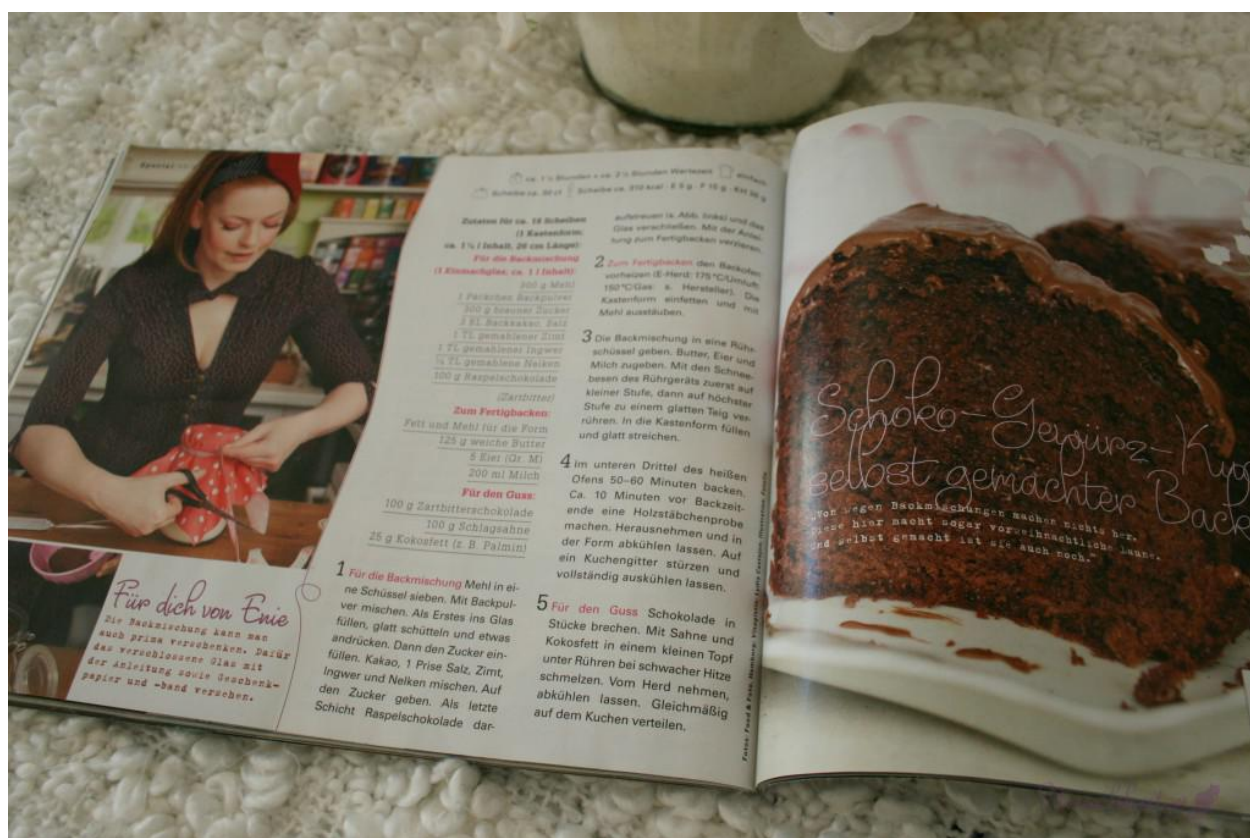 Special
ca. 1 ½ Stunden + ca. 2 ½ Stunden Wartezeit einfach
Scheibe ca. Scheibe ca. 310 kcal · E 5 g · F 15 g · KH
Zutaten für ca. 16 Scheiben
(1 Kastenform;
ca. 1 ½ l Inhalt, 26 cm Länge):
Für die Backmischung
(1 Einmachglas; ca. 1 l Inhalt):
Mehl
1 Päckchen Backpulver
brauner Zucker
Backkakao, Salz
1 TL gemahlener Zimt
1 TL gemahlener Ingwer
TL gemahlene Nelken
100 g Raspelschokolade
(Zartbitter)
Zum Fertigbacken:
Fett und Mehl für die Form
125 g weiche Butter
5 Eier (Gr. M)
200 ml Milch
Für den Guss:
100 g Zartbitterschokolade
100 g Schlagsahne
25 g Kokosfett (z. B. Palmin)
1 Für die Backmischung Mehl in ei-
ne Schüssel sieben. Mit Backpul-
ver mischen. Als Erstes ins Glas
füllen, glatt schütteln und etwas
andrücken. Dann den Zucker ein-
füllen. Kakao, 1 Prise Salz, Zimt,
Ingwer und Nelken mischen. Auf
den Zucker geben. Als letzte
Schicht Raspelschokolade dar-
aufstreuen (s. Abb. links) und das
Glas verschließen. Mit der Anlei-
tung zum Fertigbacken verzieren.
2 Zum Fertigbacken den Backofen
vorheizen (E-Herd: 175 °C/Umluft:
150 °C/Gas: s. Hersteller). Die
Kastenform einfetten und mit
Mehl ausstäuben.
3 Die Backmischung in eine Rühr-
schüssel geben. Butter, Eier und
Milch zugeben. Mit den Schnee-
besen des Rührgeräts zuerst auf
kleiner Stufe, dann auf höchster
Stufe zu einem glatten Teig ver-
rühren. In die Kastenform füllen
und glatt streichen.
4 Im unteren Drittel des heißen
Ofens 50–60 Minuten backen.
Ca. 10 Minuten vor Backzeit-
ende eine Holzstäbchenprobe
machen. Herausnehmen und in
der Form abkühlen lassen. Auf
ein Kuchengitter stürzen und
vollständig auskühlen lassen.
5 Für den Guss Schokolade in
Stücke brechen. Mit Sahne und
Kokosfett in einem kleinen Topf
unter Rühren bei schwacher Hitze
schmelzen. Vom Herd nehmen,
abkühlen lassen. Gleichmäßig
auf dem Kuchen verteilen.
Für dich von Enie
Die Backmischung kann man
auch prima verschenken. Dafür
das verschlossene Glas mit
der Anleitung sowie Geschenk-
papier und -band versehen.
Fotos: Food & Foto, Hamburg;
Schoko-Gewürz-Ku
selbst gemachter Back
Von wegen Backmischungen machen nichts her.
Diese hier macht sogar vorweihnachtliche Laune.
Und selbst gemacht ist sie auch noch.